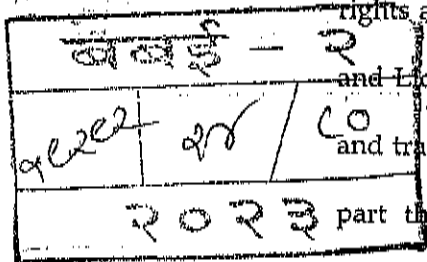 rights a
बबई - २
and Lic
२४ / ८०
and tra
२०२३ part th